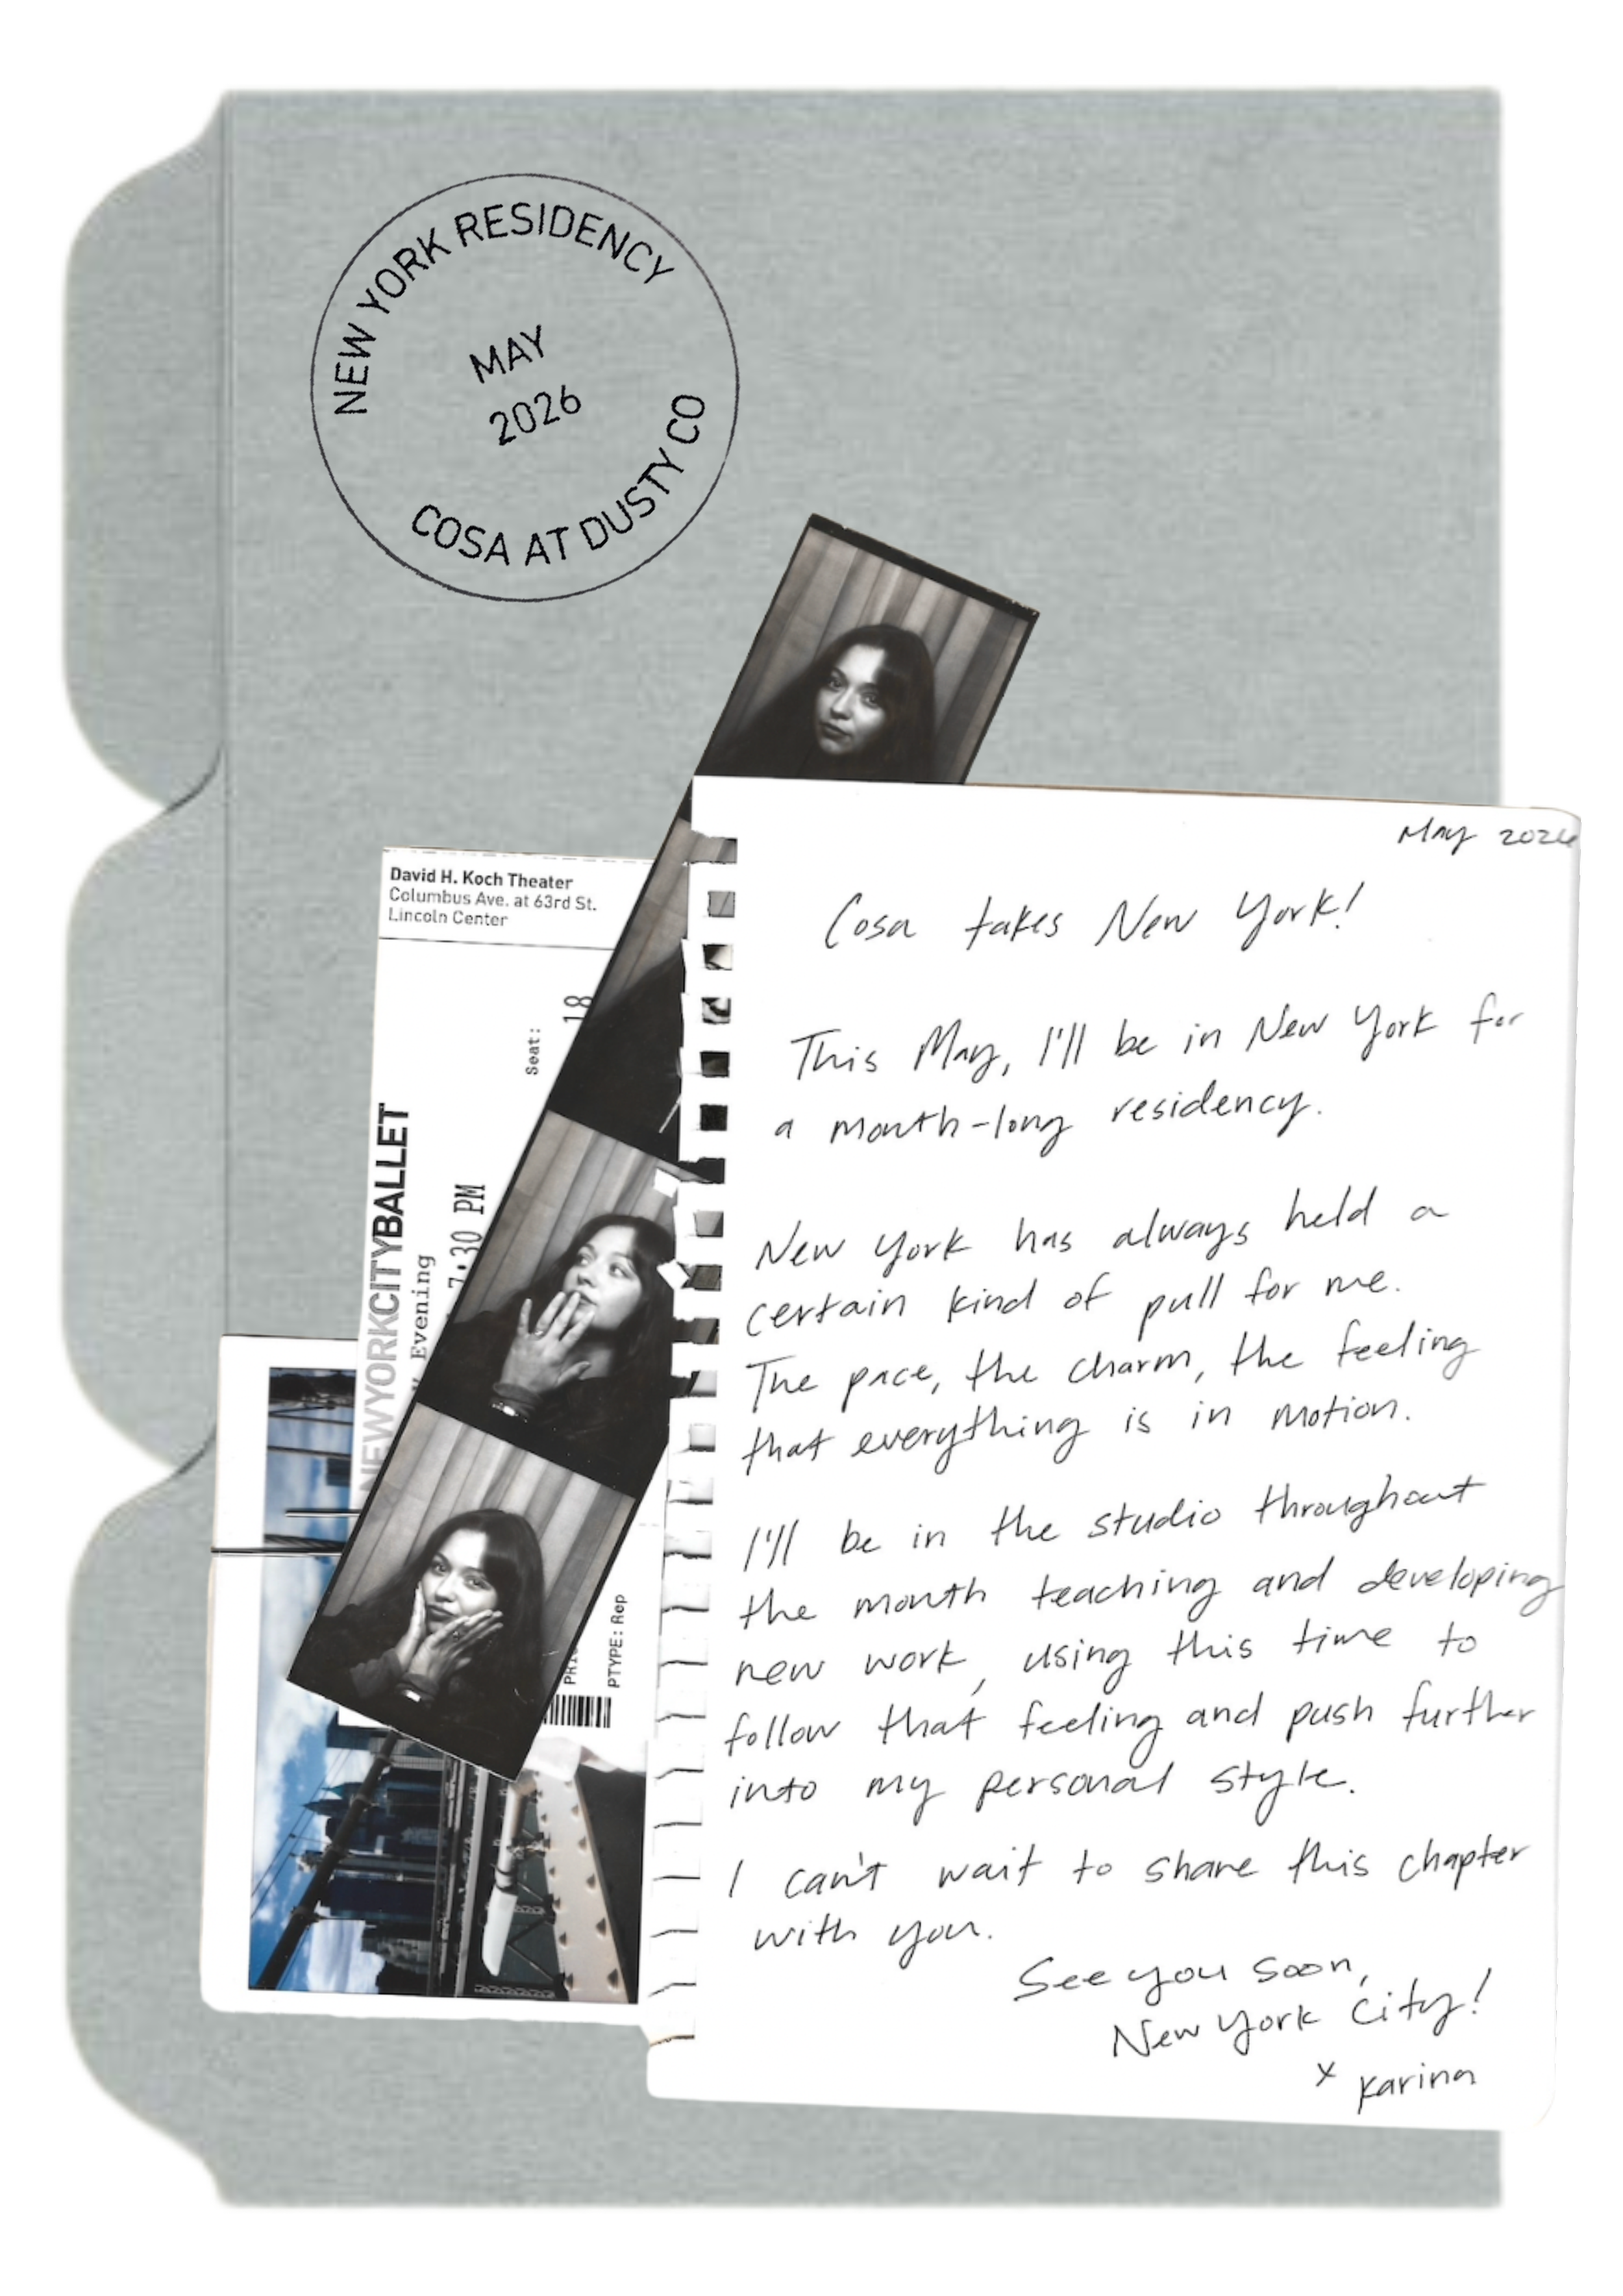 NEW YORK RESIDENCY
MAY
2026
COSA AT DUSTY CO
David H. Koch Theater
Columbus Ave. at 63rd St.
Lincoln Center
Seat:
18
NEWYORKCITYBALLET
Evening
7:30 PM
PTYPE: Rep
May 2026
Cosa takes New York!
This May, I'll be in New York for
a month-long residency.
New York has always held a
certain kind of pull for me.
The pace, the charm, the feeling
that everything is in motion.
I'll be in the studio throughout
the month teaching and developing
new work, using this time to
follow that feeling and push further
into my personal style.
I can't wait to share this chapter
with you.
See you soon,
New York City!
x karina